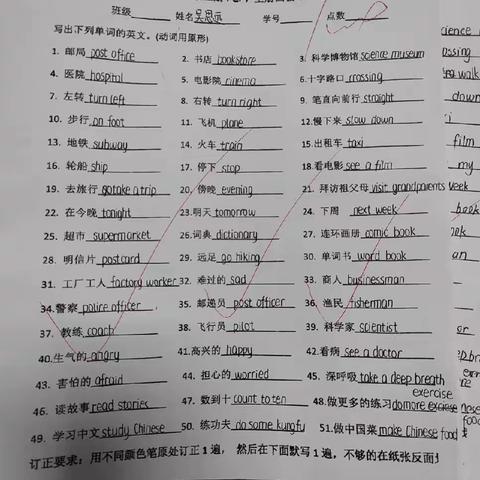 班级 姓名吴思示 学号 点数
写出下列单词的英文。(动词用原形)
1. 邮局 post office 2. 书店 bookstore 3. 科学博物馆 science museum
4. 医院 hospital 5. 电影院 cinema 6.十字路口 crossing
7. 左转 turn left 8. 右转 turn right 9. 笔直向前行 straight
10. 步行 on foot 11. 飞机 plane 12.慢下来 slow down
13. 地铁 subway 14. 火车 train 15.出租车 taxi
16. 轮船 ship 17. 停下 stop 18.看电影 see a film
19. 去旅行 go take a trip 20. 傍晚 evening 21. 拜访祖父母 visit grandparents
22. 在今晚 tonight 23.明天 tomorrow 24. 下周 next week
25. 超市 supermarket 26.词典 dictionary 27. 连环画册 comic book
28. 明信片 postcard 29. 远足 go hiking 30. 单词书 word book
31. 工厂工人 factory worker 32. 难过的 sad 33. 商人 businessman
34.警察 police officer 35. 邮递员 post officer 36. 渔民 fisherman
37. 教练 coach 38. 飞行员 pilot 39. 科学家 scientist
40.生气的 angry 41.高兴的 happy 42.看病 see a doctor
43. 害怕的 afraid 44. 担心的 worried 45. 深呼吸 take a deep breath
exercise
46. 读故事 read stories 47. 数到十 count to ten 48.做更多的练习 do more
49. 学习中文 study Chinese 50. 练功夫 do some kungfu 51.做中国菜 make Chinese food
订正要求：用不同颜色笔原处订正1遍， 然后在下面默写1遍，不够的在纸张反面